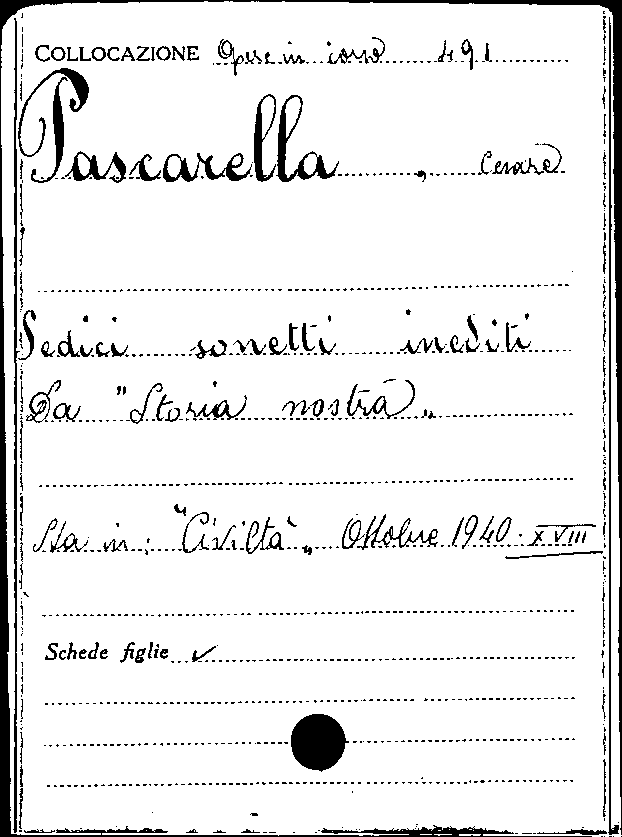 COLLOCAZIONE Opere in corso 491
Pascarella, Cesare
Sedici sonetti inediti
Da "Storia nostra„
Sta in: "Civiltà„ Ottobre 1940-XVIII
Schede figlie ✓